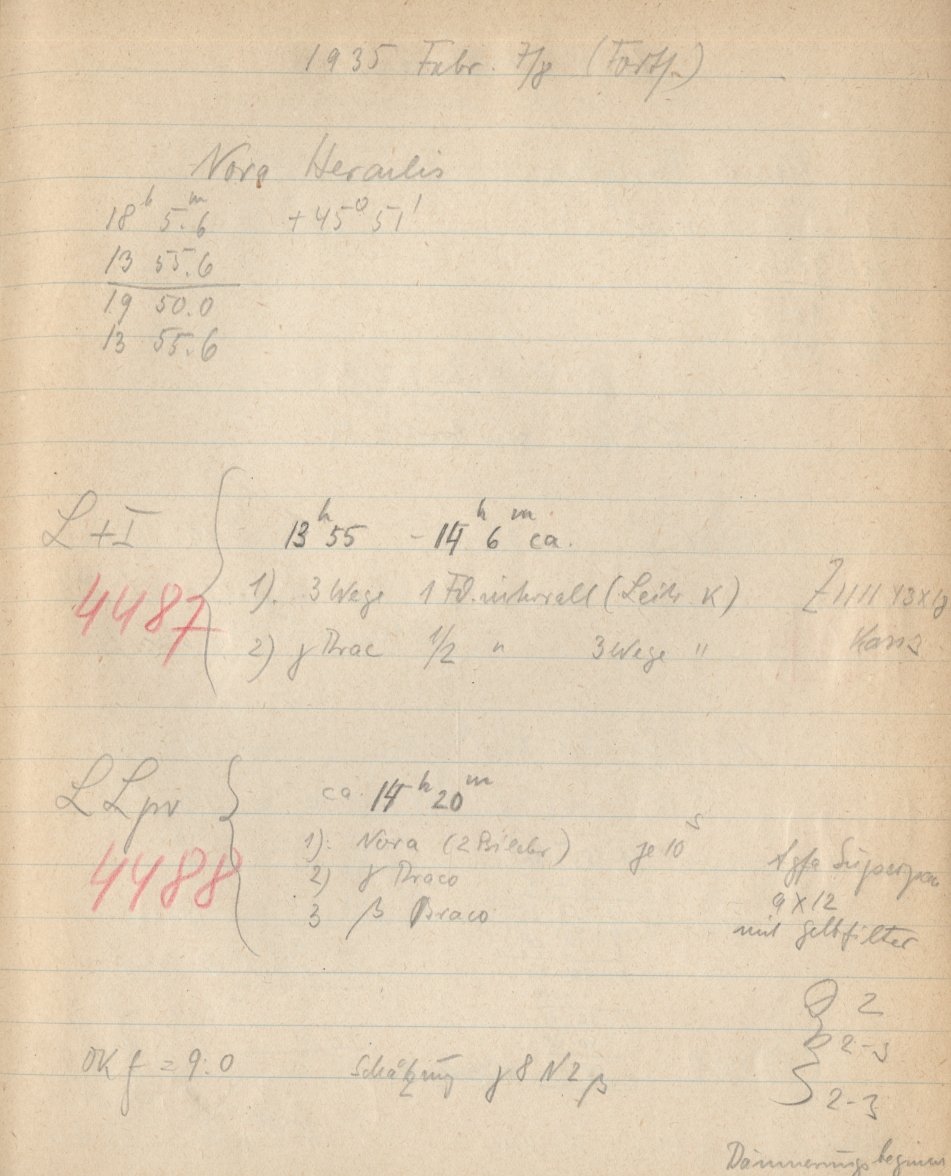 1935 Febr. 7/8 (Forts.)
Nova Herculis
18ʰ 5.ᵐ6 +45° 51'
13 55.6
19 50.0
13 55.6
L + I
4487
13ʰ 55 - 14ʰ 6ᵐ ca.
1). 3 Wege 1 Fd. intervall (Leitr. K)
2) γ Drac 1/2 " 3 Wege "
13x18
L Lpr
4488
ca. 14ʰ 20ᵐ
1). Nova (2 Bilder) je 10ˢ
2) γ Draco
3 β Draco
Agfa Superpan
9 x 12
mit Gelbfilter
Q 2
2-3
S 2-3
OK f = 9.0 Schätzung γ 8 N 2 β
Dämmerungsbeginn